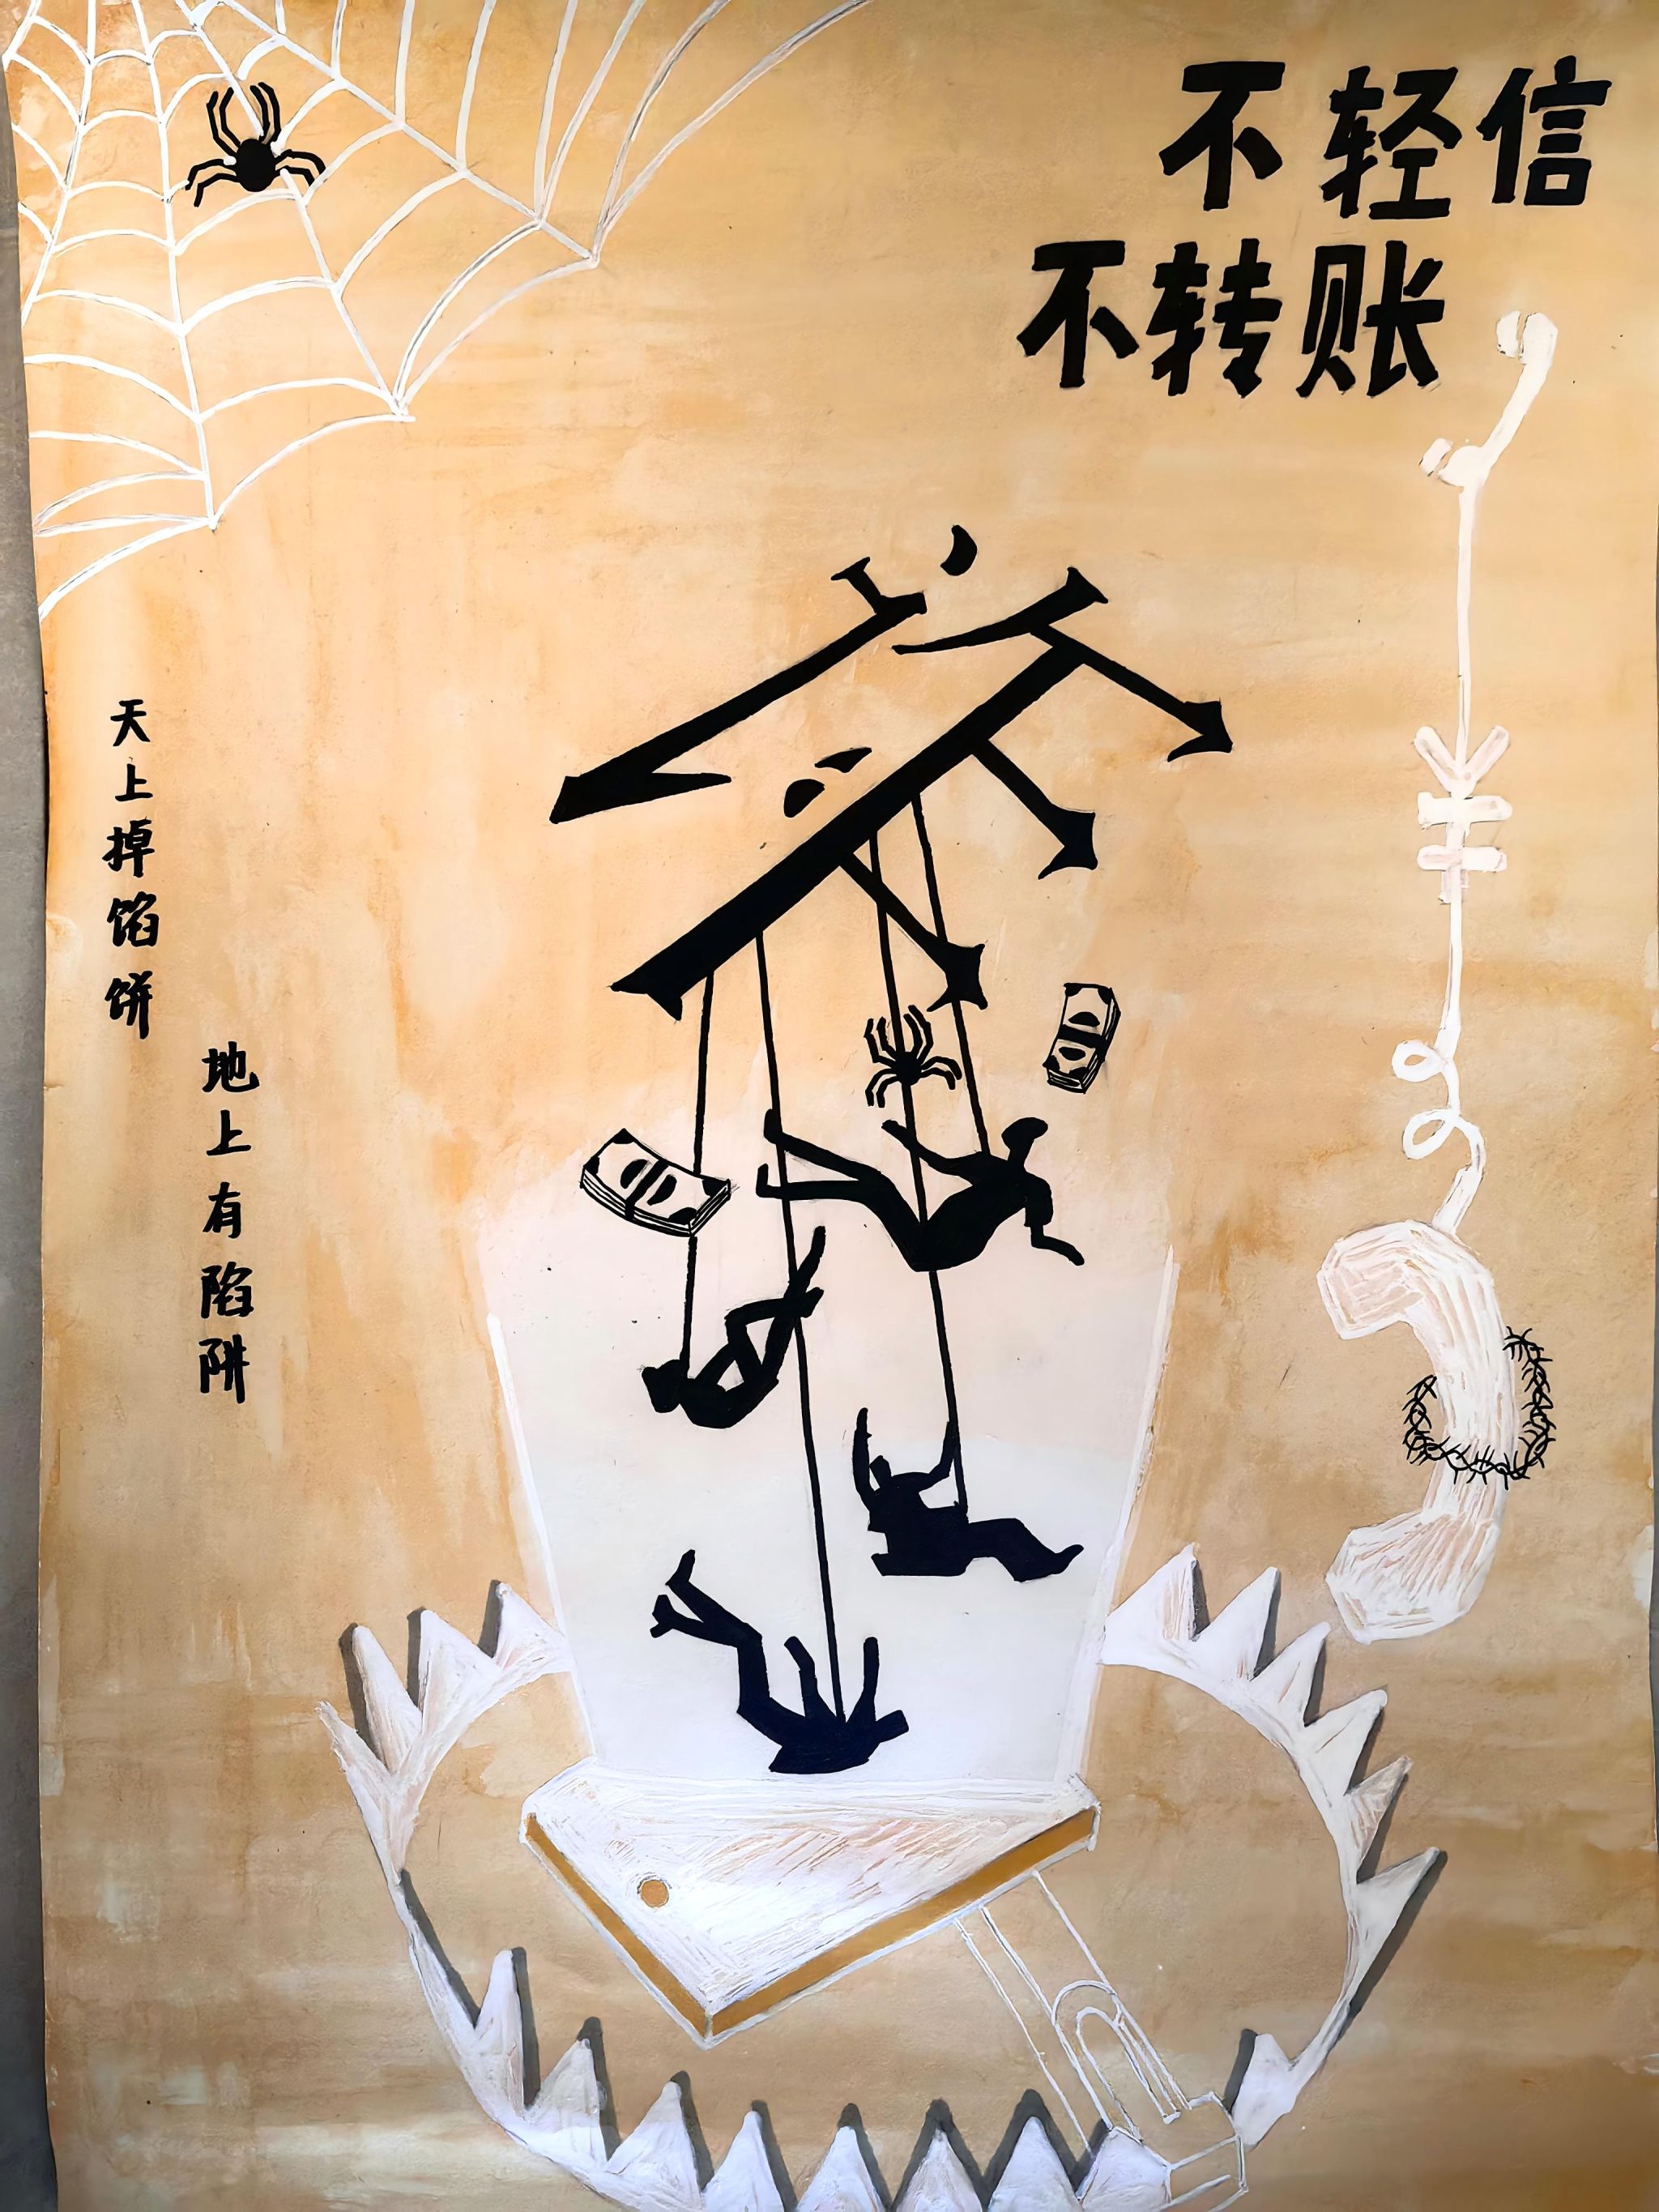 不轻信
不转账
诈
¥
天上掉馅饼
地上有陷阱